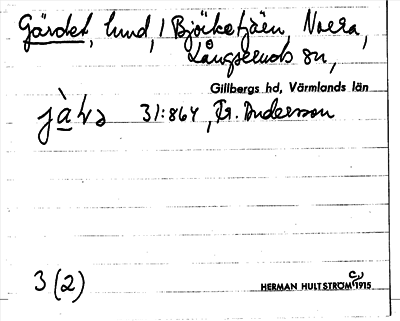 Gärdet, lund, i Björketjäen, Norra,
Långseruds sn,
Gillbergs hd, Värmlands län
31:864, Fr. Andersson
3 (2)
HERMAN HULTSTRÖM 1915